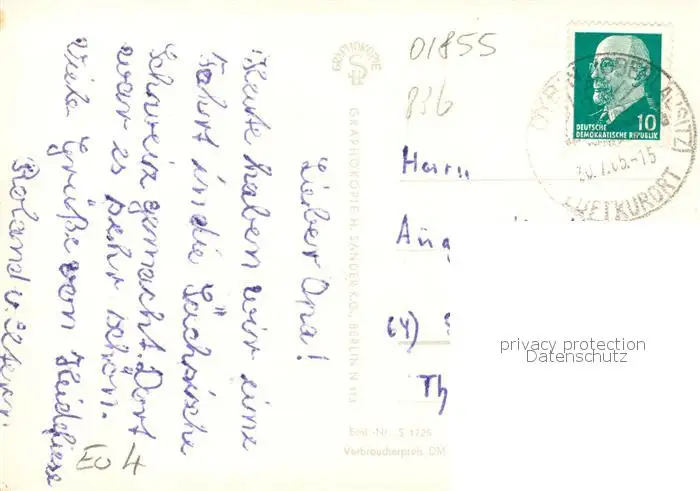 Lieber Opa!
Heute haben wir eine
Fahrt in die Sächsische
Schweiz gemacht. Dort
war es sehr schön.
Viele Grüße von Heidi
Roland u. Eltern
EO 4
GRAPHOKOPIE
GRAPHOKOPIE H. SANDER K.G., BERLIN N 113
Best.-Nr. S 1725
Verbraucherpreis DM
01855
836
10
DEUTSCHE
DEMOKRATISCHE REPUBLIK
OYBIN (OBERLAUSITZ)
LUFTKURORT
Herrn
Aug
(64)
Th
privacy protection
Datenschutz